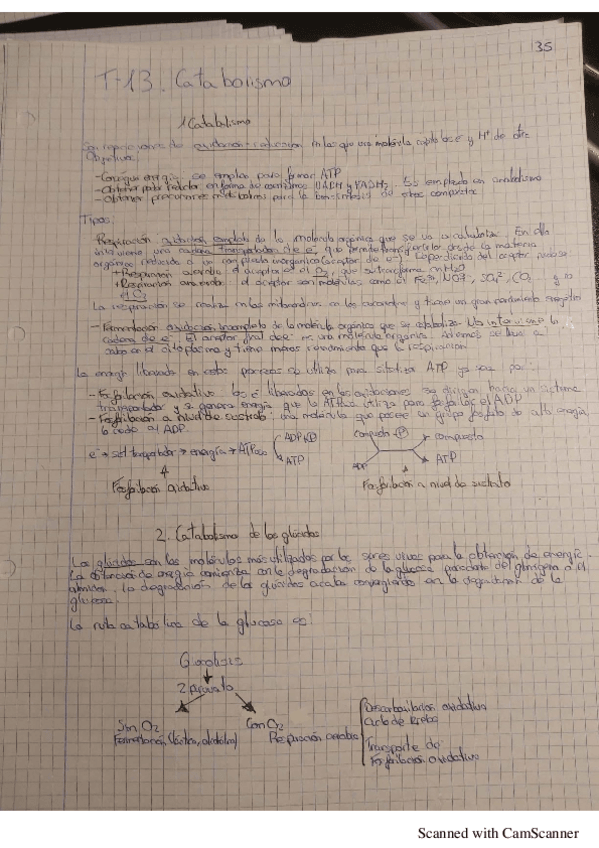 35
T-13. Catabolismo
1 Catabolismo
Son reacciones de oxidación-reducción en las que una molécula capta los e⁻ y H⁺ de otra
Objetivos:
-Conseguir energía se emplea para formar ATP
-Obtener poder reductor en forma de coenzimas NADH y FADH₂. Es empleado en anabolismo
-Obtener precursores metabólicos para la biosíntesis de otros compuestos
Tipos:
-Respiración oxidación completa de la molécula orgánica que se va a catabolizar. En ella
interviene una cadena transportadora de e⁻, que permite transferirlos desde la materia
orgánica reducida a un compuesto inorgánico (aceptor de e⁻). Dependiendo del aceptor puede ser
+Respiración aerobia el aceptor es el O₂, que se transforma en H₂O
+Respiración anaerobia: el aceptor son moléculas como el Fe³⁺, NO₃⁻, SO₄²⁻, CO₂ y no
el O₂
La respiración se realiza en las mitocondrias en las eucariotas y tiene un gran rendimiento energético
-Fermentación oxidación incompleta de la molécula orgánica que se cataboliza. No interviene la
cadena de e⁻. El aceptor final de e⁻ es una molécula orgánica. se lleva a
cabo en el citoplasma y tiene menos rendimiento que la respiración
La energía liberada en estos procesos se utiliza para sintetizar ATP ya sea por:
-Fosforilación oxidativa los e⁻ liberados en las oxidaciones se dirigen hacia un sistema
transportador y se genera energía que la ATPasa utiliza para fosforilar el ADP
-Fosforilación a nivel de sustrato: una molécula que posee un grupo fosfato de alta energía
lo cede al ADP.
e⁻ → sist transportador → energía → ATPasa ADP+P ATP
Fosforilación oxidativa
compuesto P compuesto
ADP ATP
Fosforilación a nivel de sustrato
2. Catabolismo de los glúcidos
Los glúcidos son las moléculas más utilizadas por los seres vivos para la obtención de energía.
La obtención de energía comienza con la degradación de la glucosa procedente del glucógeno o el
almidón. La degradación de los glúcidos acaba convergiendo en la degradación de la
glucosa.
La ruta catabólica de la glucosa es:
Glucólisis
2 piruvato
Sin O₂
Fermentación (láctica, alcohólica)
Con O₂
Respiración aerobia
Descarboxilación oxidativa
Ciclo de Krebs
Transporte de
Fosforilación oxidativa
Scanned with CamScanner